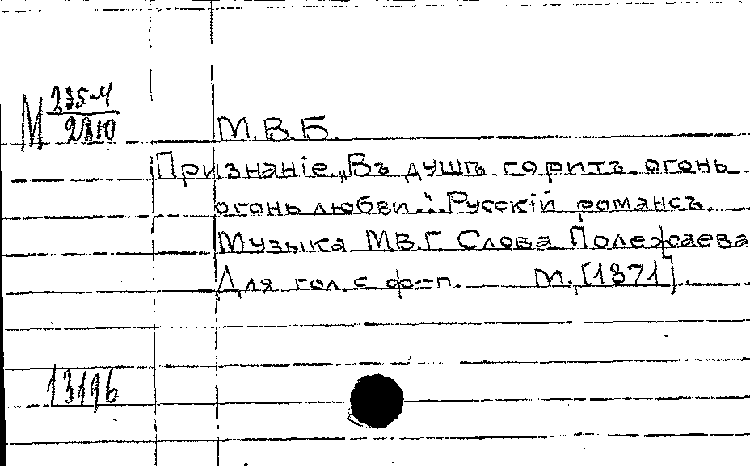 М 235-4
2810
М.В.Б.
Признанiе. „Въ душѣ горитъ огонь
огонь любви...". Русскiй романсъ.
Музыка М.В.Г. Слова Полежаева
Для гол. с ф-п. М., [1871].
13196